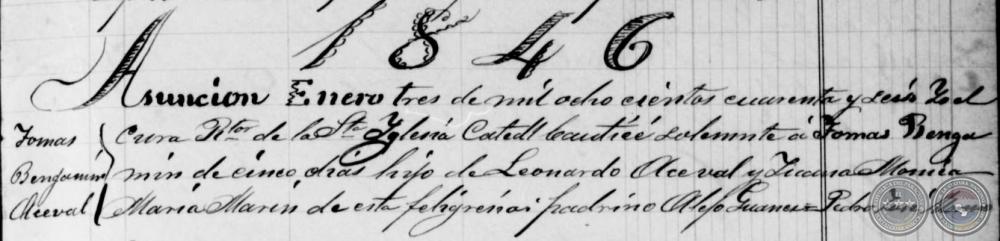 1846
Asuncion Enero tres de mil ocho cientos cuarenta y seis Yo el
Tomas Cura Rtor de la Sta Yglesia Catedl bauticé solemnte á Tomas Benga
Bengamin min de cinco dias hijo de Leonardo Aceval y Monica
Aceval Maria Marin de esta feligresia: padrino Alejo Guanes = Pedro